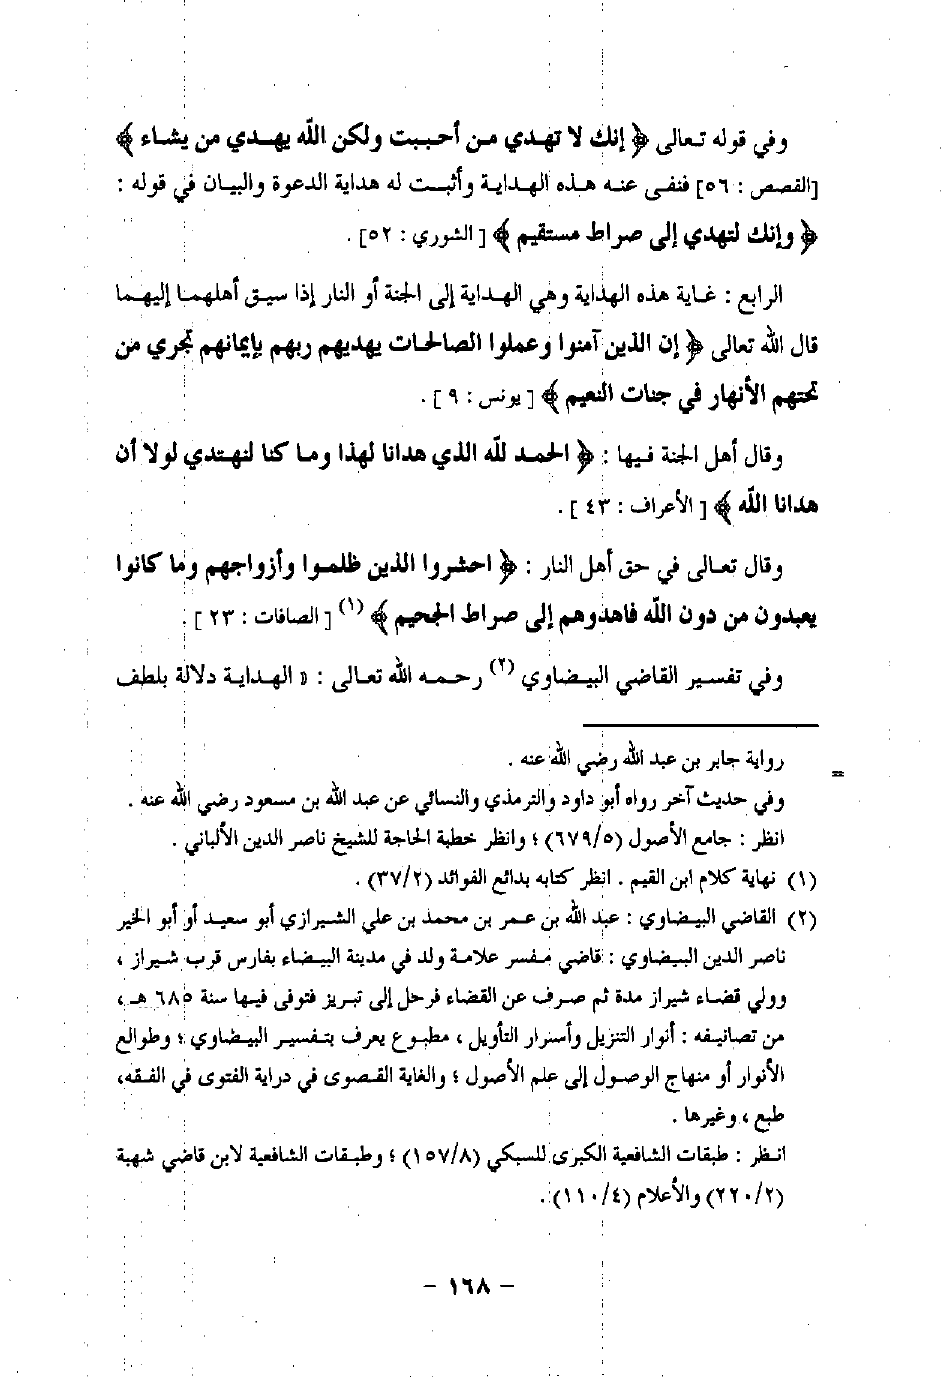 وفي قوله تعالى ﴿ إنك لا تهدي من أحببت ولكن الله يهدي من يشاء ﴾
[القصص : ٥٦] فنفى عنه هذه الهداية وأثبت له هداية الدعوة والبيان في قوله :
﴿ وإنك لتهدي إلى صراط مستقيم ﴾ [ الشوري : ٥٢] .
الرابع : غاية هذه الهداية وهي الهداية إلى الجنة أو النار إذا سيق أهلهما إليهما
قال الله تعالى ﴿ إن الذين آمنوا وعملوا الصالحات يهديهم ربهم بإيمانهم تجري من
تحتهم الأنهار في جنات النعيم ﴾ [ يونس : ٩ ] .
وقال أهل الجنة فيها : ﴿ الحمد لله الذي هدانا لهذا وما كنا لنهتدي لولا أن
هدانا الله ﴾ [ الأعراف : ٤٣ ] .
وقال تعالى في حق أهل النار : ﴿ احشروا الذين ظلموا وأزواجهم وما كانوا
يعبدون من دون الله فاهدوهم إلى صراط الجحيم ﴾ (١) [ الصافات : ٢٣ ] .
وفي تفسير القاضي البيضاوي (٢) رحمه الله تعالى : « الهداية دلالة بلطف
= رواية جابر بن عبد الله رضي الله عنه .
وفي حديث آخر رواه أبو داود والترمذي والنسائي عن عبد الله بن مسعود رضي الله عنه .
انظر : جامع الأصول (٦٧٩/٥) ؛ وانظر خطبة الحاجة للشيخ ناصر الدين الألباني .
(١) نهاية كلام ابن القيم . انظر كتابه بدائع الفوائد (٣٧/٢) .
(٢) القاضي البيضاوي : عبد الله بن عمر بن محمد بن علي الشيرازي أبو سعيد أو أبو الخير
ناصر الدين البيضاوي : قاضي مفسر علامة ولد في مدينة البيضاء بفارس قرب شيراز ،
وولي قضاء شيراز مدة ثم صرف عن القضاء فرحل إلى تبريز فتوفى فيها سنة ٦٨٥ هـ ،
من تصانيفه : أنوار التنزيل وأسرار التأويل ، مطبوع يعرف بتفسير البيضاوي ؛ وطوالع
الأنوار أو منهاج الوصول إلى علم الأصول ؛ والغاية القصوى في دراية الفتوى في الفقه،
طبع ، وغيرها .
انظر : طبقات الشافعية الكبرى للسبكي (١٥٧/٨) ؛ وطبقات الشافعية لابن قاضي شهبة
(٢٢٠/٢) والأعلام (١١٠/٤) .
- ١٦٨ -